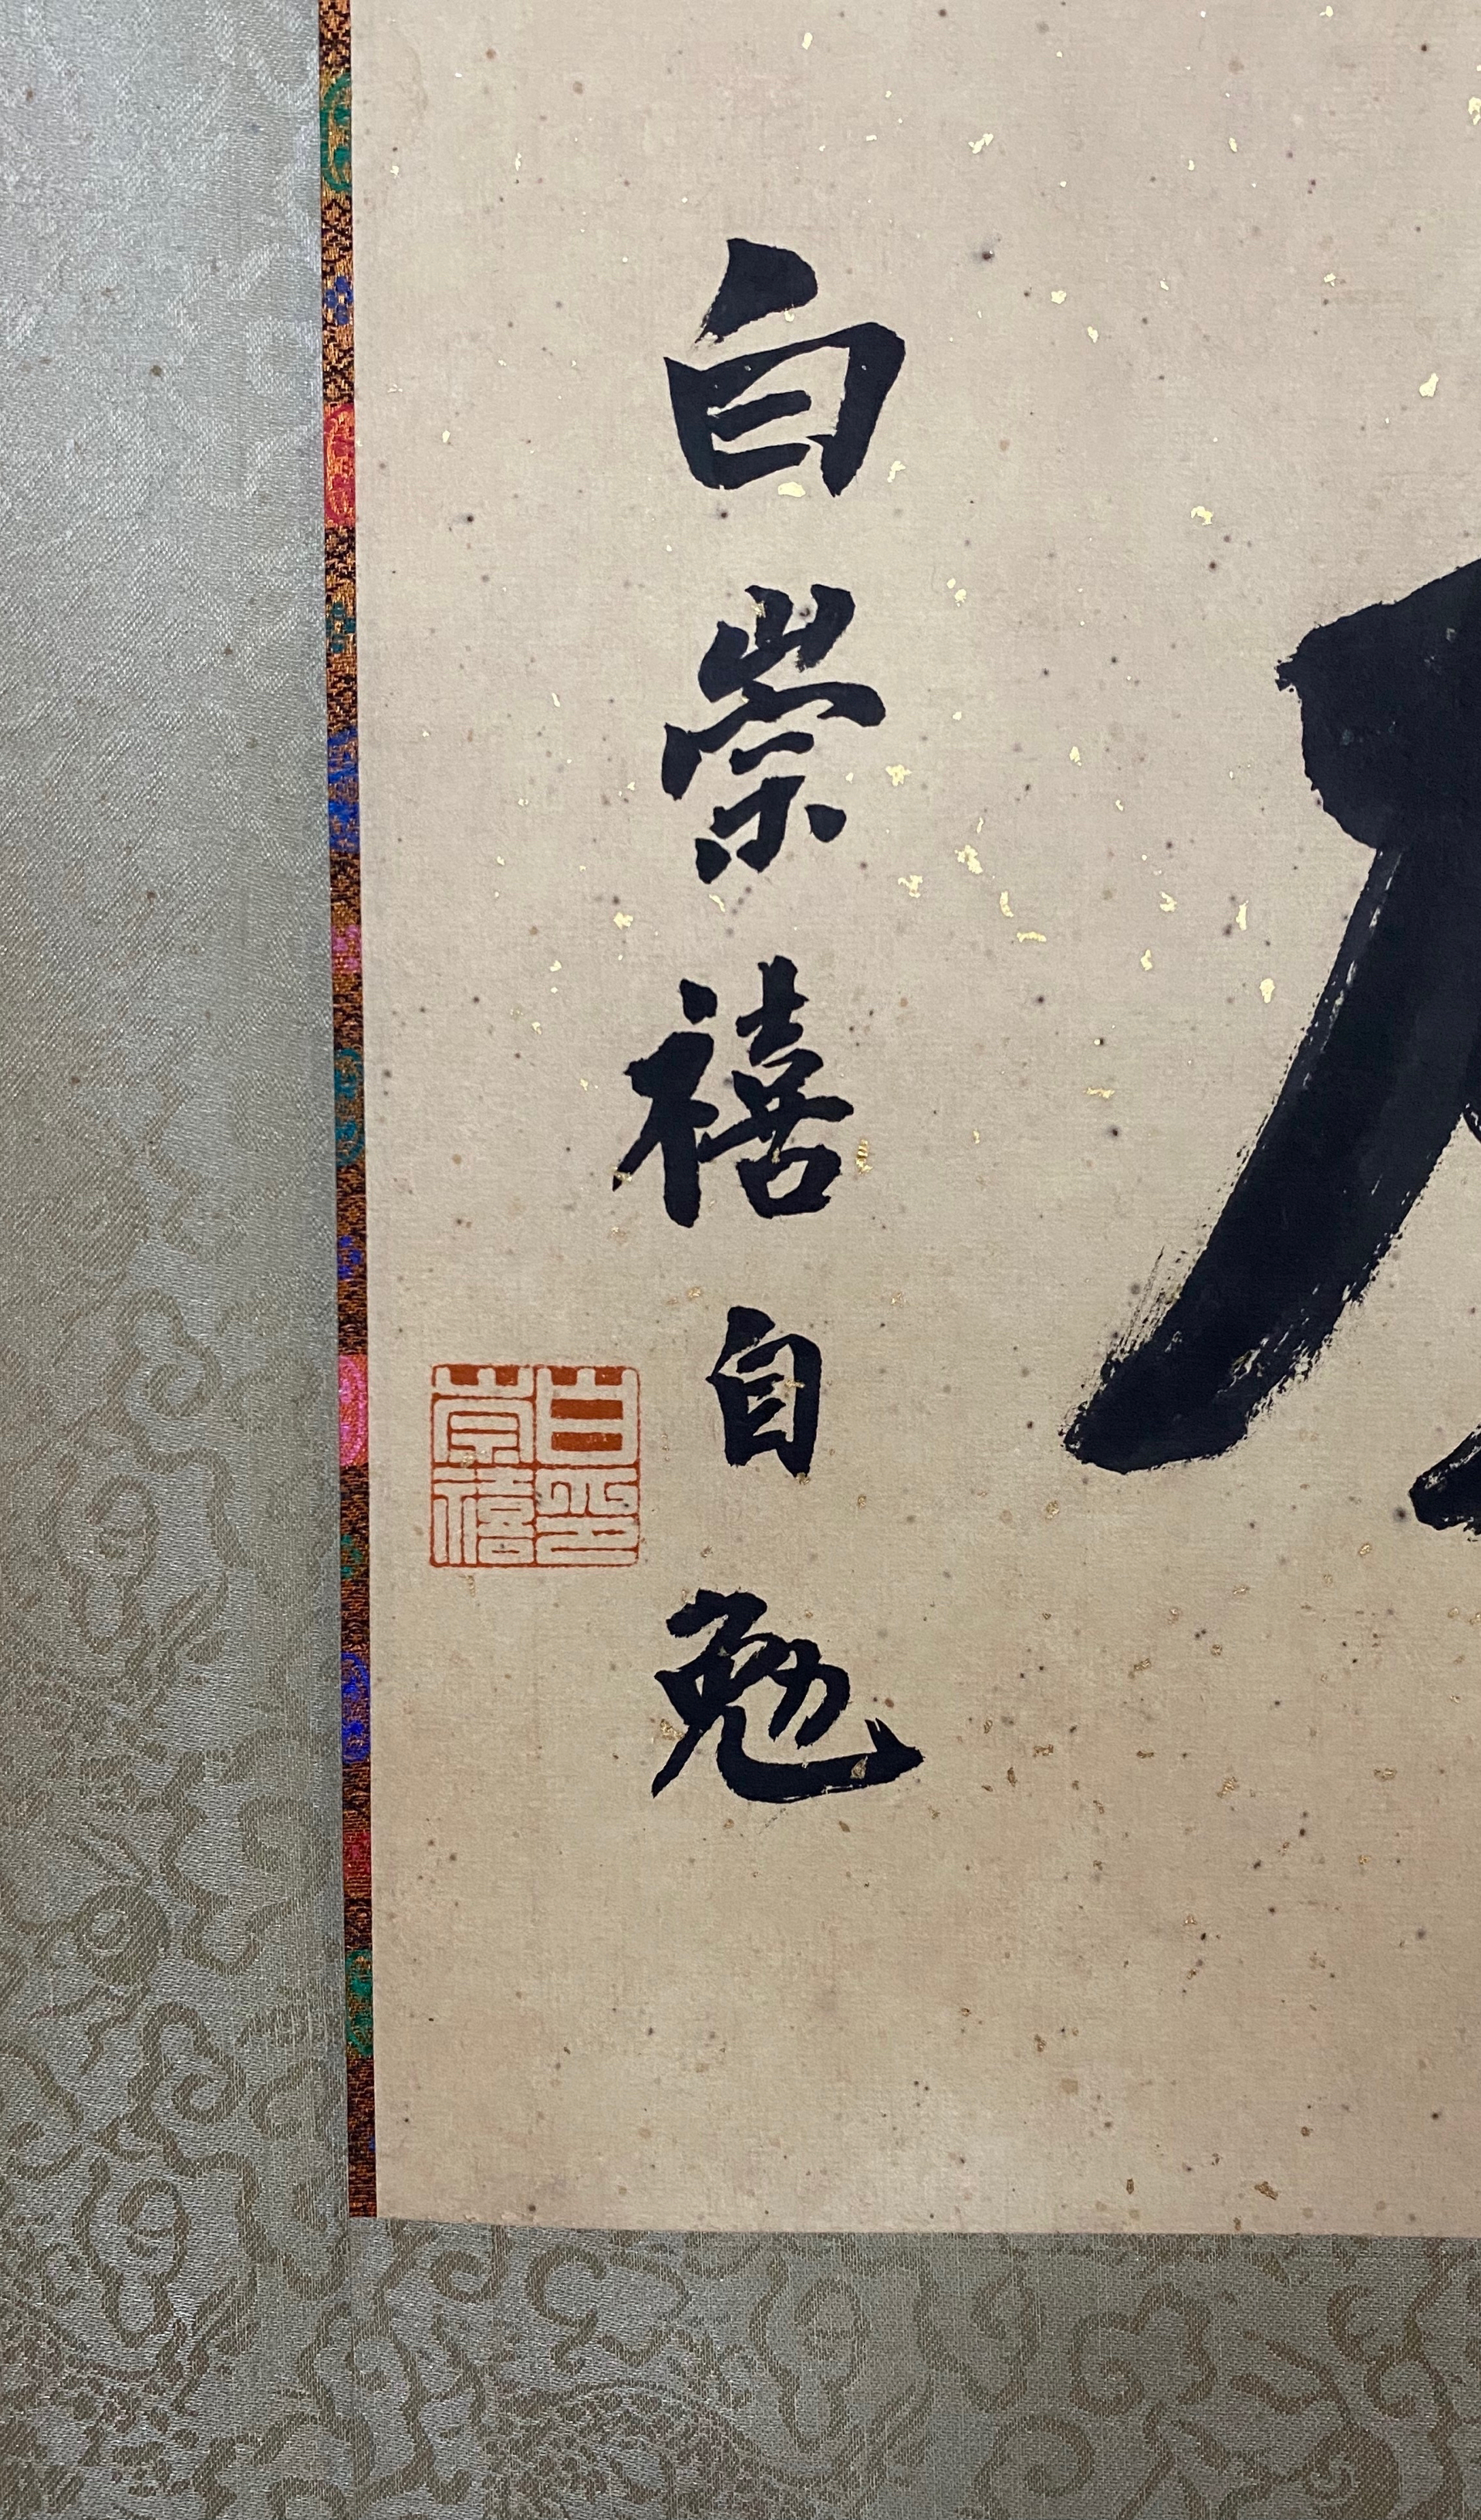 白崇禧自勉
白崇禧印